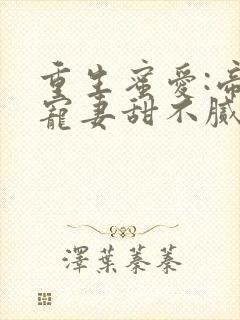 重生蜜愛:帝
寵妻甜不膩
澤葉蓁蓁